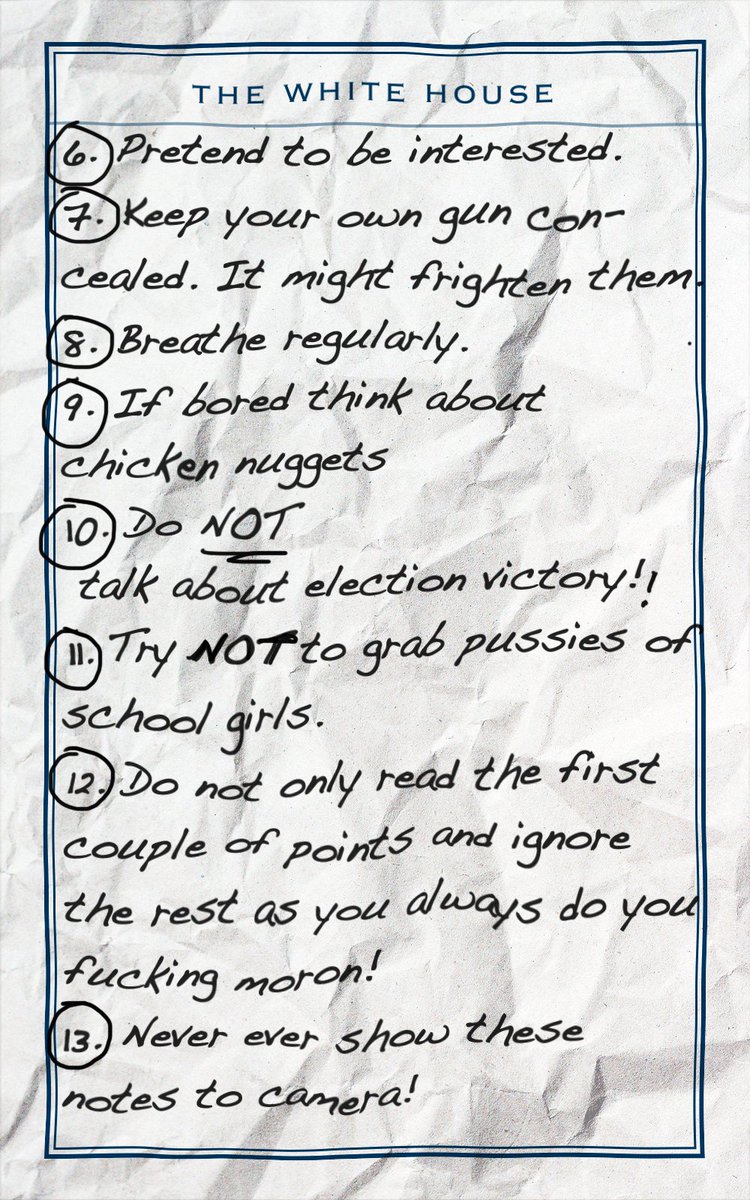 THE WHITE HOUSE
6. Pretend to be interested.
7. Keep your own gun con-
cealed. It might frighten them.
8. Breathe regularly.
9. If bored think about
chicken nuggets
10. Do NOT
talk about election victory!!
11. Try NOT to grab pussies of
school girls.
12. Do not only read the first
couple of points and ignore
the rest as you always do you
fucking moron!
13. Never ever show these
notes to camera!